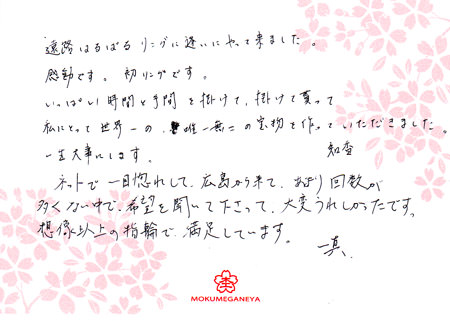 遠路はるばるリングに逢いにやって来ました。
感動です。初リングです。
いっぱい時間と手間を掛けて、掛けて貰って
私にとって世界一の、唯一無二の宝物を作っていただきました。
一生大事にします。
知香
ネットで一目惚れして、広島から来て、あまり回数が
多くない中で、希望を聞いて下さって、大変うれしかったです。
想像以上の指輪で、満足しています。
一真.
杢
MOKUMEGANEYA